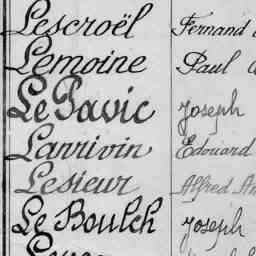 Lescroël Fernand
Lemoine Paul
Le Pavic Joseph
Lanrivin Edouard
Lesieur Alfred
Le Boulch Joseph